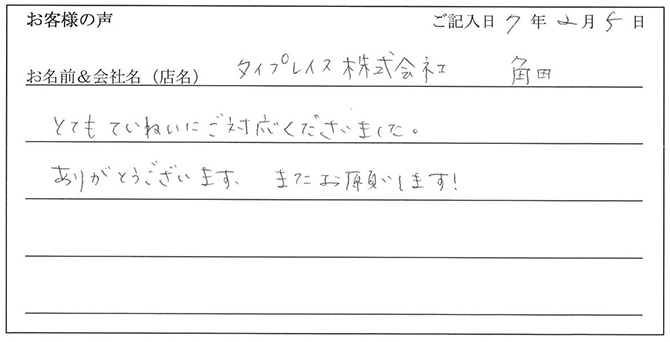 お客様の声 ご記入日 7 年 2 月 5 日
お名前&会社名（店名） タイプレイス株式会社 角田
とてもていねいにご対応くださいました。
ありがとうございます、またお願いします!